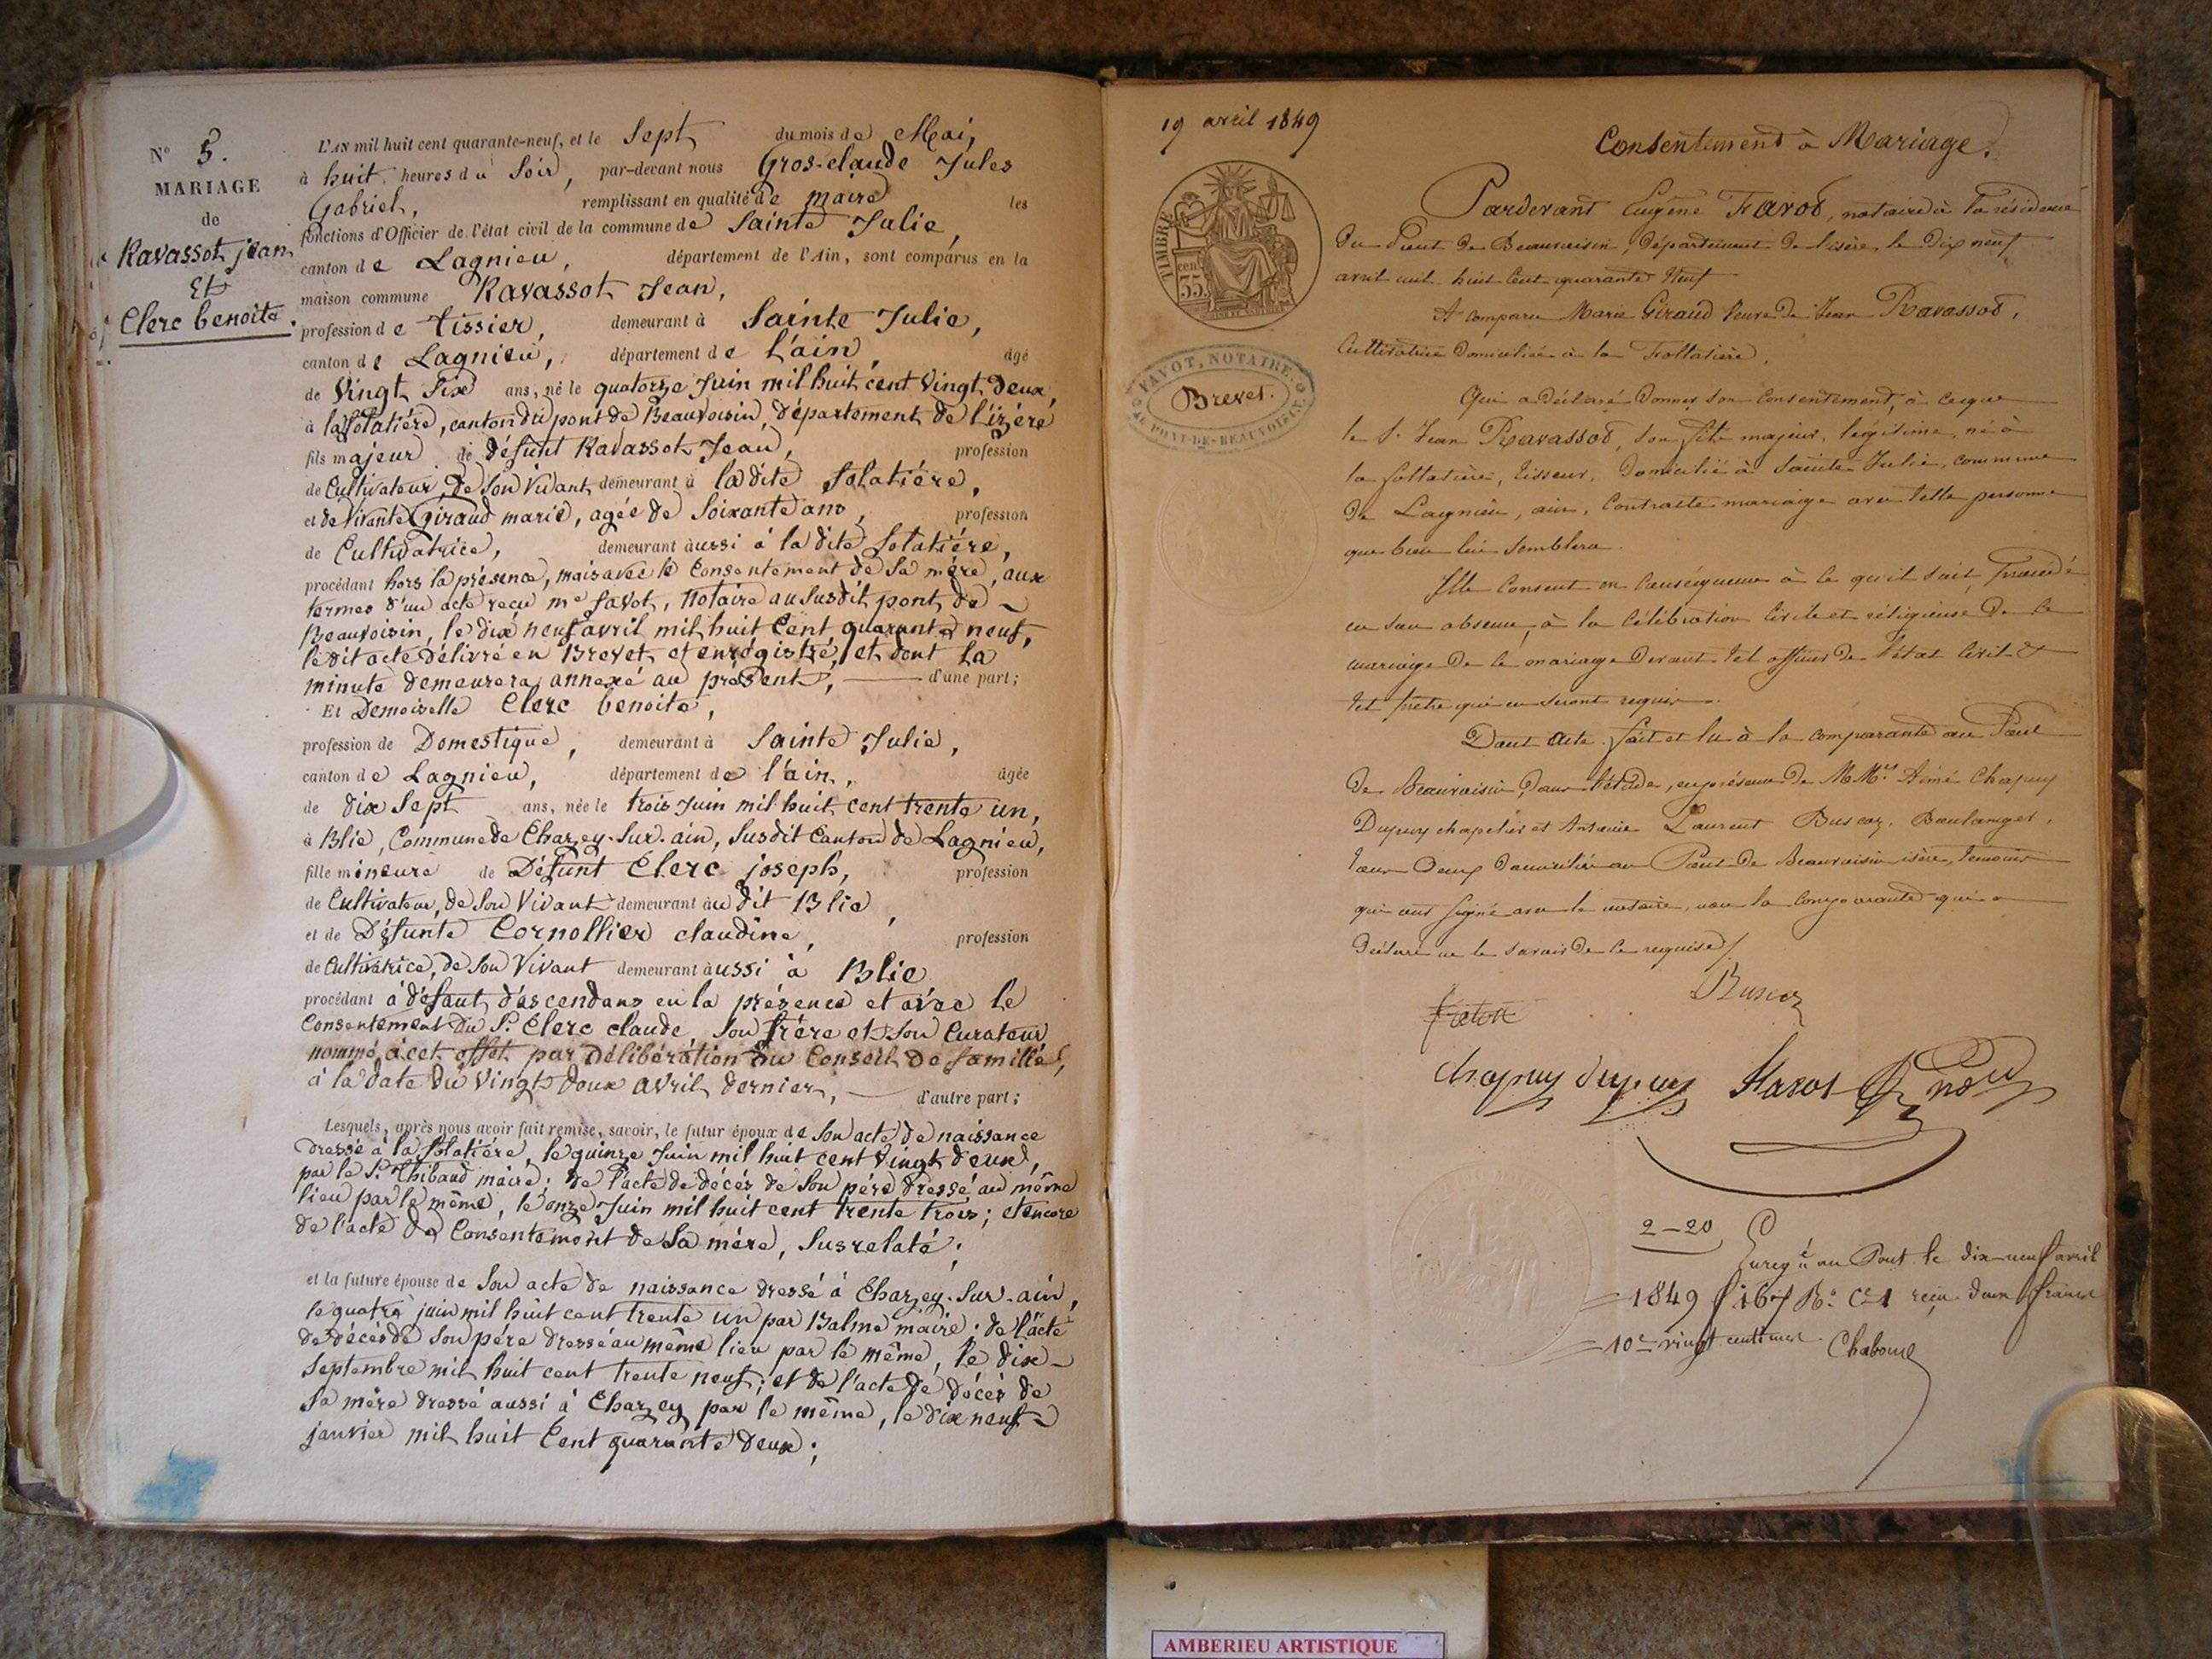 N° 5.
MARIAGE
de
Ravassot jean
Et
Clerc benoite.
L'AN mil huit cent quarante-neuf, et le Sept du mois de Mai,
à huit heures du Soir, par-devant nous Gros-claude Jules
Gabriel, remplissant en qualité de maire les
fonctions d'Officier de l'état civil de la commune de Sainte Julie,
canton de Lagnieu, département de l'Ain, sont comparus en la
maison commune Ravassot Jean,
profession de tissier, demeurant à Sainte Julie,
canton de Lagnieu, département de L'ain, âgé
de Vingt Six ans, né le quatorze Juin mil huit cent Vingt deux,
à la folatière, canton du pont de Beauvoisin, département de l'izére
fils majeur de défunt Ravassot Jean, profession
de Cultivateur, de Son Vivant demeurant à la dite folatière,
et de Vivante Giraud marie, agée de Soixante ans, profession
de Cultivatrice, demeurant aussi à la dite folatière,
procédant hors la présence, mais avec le Consentement de Sa mère, aux
termes d'un acte reçu me favot, Notaire au Susdit pont de
Beauvoisin, le dix neuf avril mil huit Cent quarante neuf,
le dit acte délivré en Brevet, et enregistré, et dont La
minute demeurera annexé au présent, d'une part;
Et Demoiselle Clerc benoite,
profession de Domestique, demeurant à Sainte Julie,
canton de Lagnieu, département de l'ain, âgée
de dix Sept ans, née le trois Juin mil huit cent trente un,
à Blie, Commune de Chazey-Sur-ain, Susdit Canton de Lagnieu,
fille mineure de Défunt Clerc joseph, profession
de Cultivateur, de Son Vivant demeurant au dit Blie,
et de Défunte Cornollier claudine, profession
de Cultivatrice, de Son Vivant demeurant aussi à Blie
procédant à défaut d'ascendans en la présence et avec le
Consentement du Sr. Clerc claude Son frère et Son Curateur
nommé à cet effet par délibération du Conseil de famille,
à la date du Vingt deux avril dernier, d'autre part;
Lesquels, après nous avoir fait remise, savoir, le futur époux de Son acte de naissance
dressé à la folatière, le quinze Juin mil huit cent Vingt deux,
par le Sr. Thibaud maire; de l'acte de décès de Son père dressé au même
lieu par le même, le onze Juin mil huit cent trente trois; et encore
de l'acte de Consentement de Sa mère, Susrelaté;
et la future épouse de Son acte de naissance dressé à Chazey-Sur-ain,
le quatre juin mil huit cent trente un par Balme maire; de l'acte
de décès de Son père dressé au même lieu par le même, le dix
Septembre mil huit cent trente neuf; et de l'acte de décès de
Sa mère dressé aussi à Chazey par le même, le dix neuf
janvier mil huit Cent quarante deux;
19 avril 1849
TIMBRE
35 cen
FAVOT, NOTAIRE.
Brevet.
AU PONT-DE-BEAUVOISIN.
Consentement à Mariage.
Pardevant Eugène Favot, notaire à la résidence
du Pont de Beauvoisin, département de l'isère, le dix neuf
avril mil huit Cent quarante Neuf
A comparu Marie Giraud Veuve de Jean Ravassot,
Cultivatrice domiciliée à la Follatière.
Qui a déclaré donner son consentement, à ce que
le Sr. Jean Ravassot, son fils majeur, légitime, né à
la follatière, tisseur, domicilié à Sainte Julie, commune
de Lagnieu, ain, Contracte mariage avec telle personne
que bon lui semblera.
Elle Consent en Conséquence à ce qu'il soit, procédé
en son absence, à la Célébration Civile et réligieuse de ce
mariage de ce mariage devant tel officier de l'état Civil &
tel prêtre qui en seront requis.
Dont Acte. fait et lu à la comparante au Pont
de Beauvoisin, dans l'étude, en présence de MMrs Aimé Chapuy
Dupuy chapelier et Antoine Laurent Buscoz, Boulanger,
tous deux domiciliés au Pont de Beauvoisin isère, temoins
qui ont signé avec le notaire, non la Comparante qui a
déclaré ne le savoir de ce requise./.
Buscoz
Chapuy dupuy Favot
2-20
Enregé au Pont le dix-neuf avril
1849 f 167 Ro Ce 1 reçu deux francs
10e vingt centimes Chaboud
AMBERIEU ARTISTIQUE